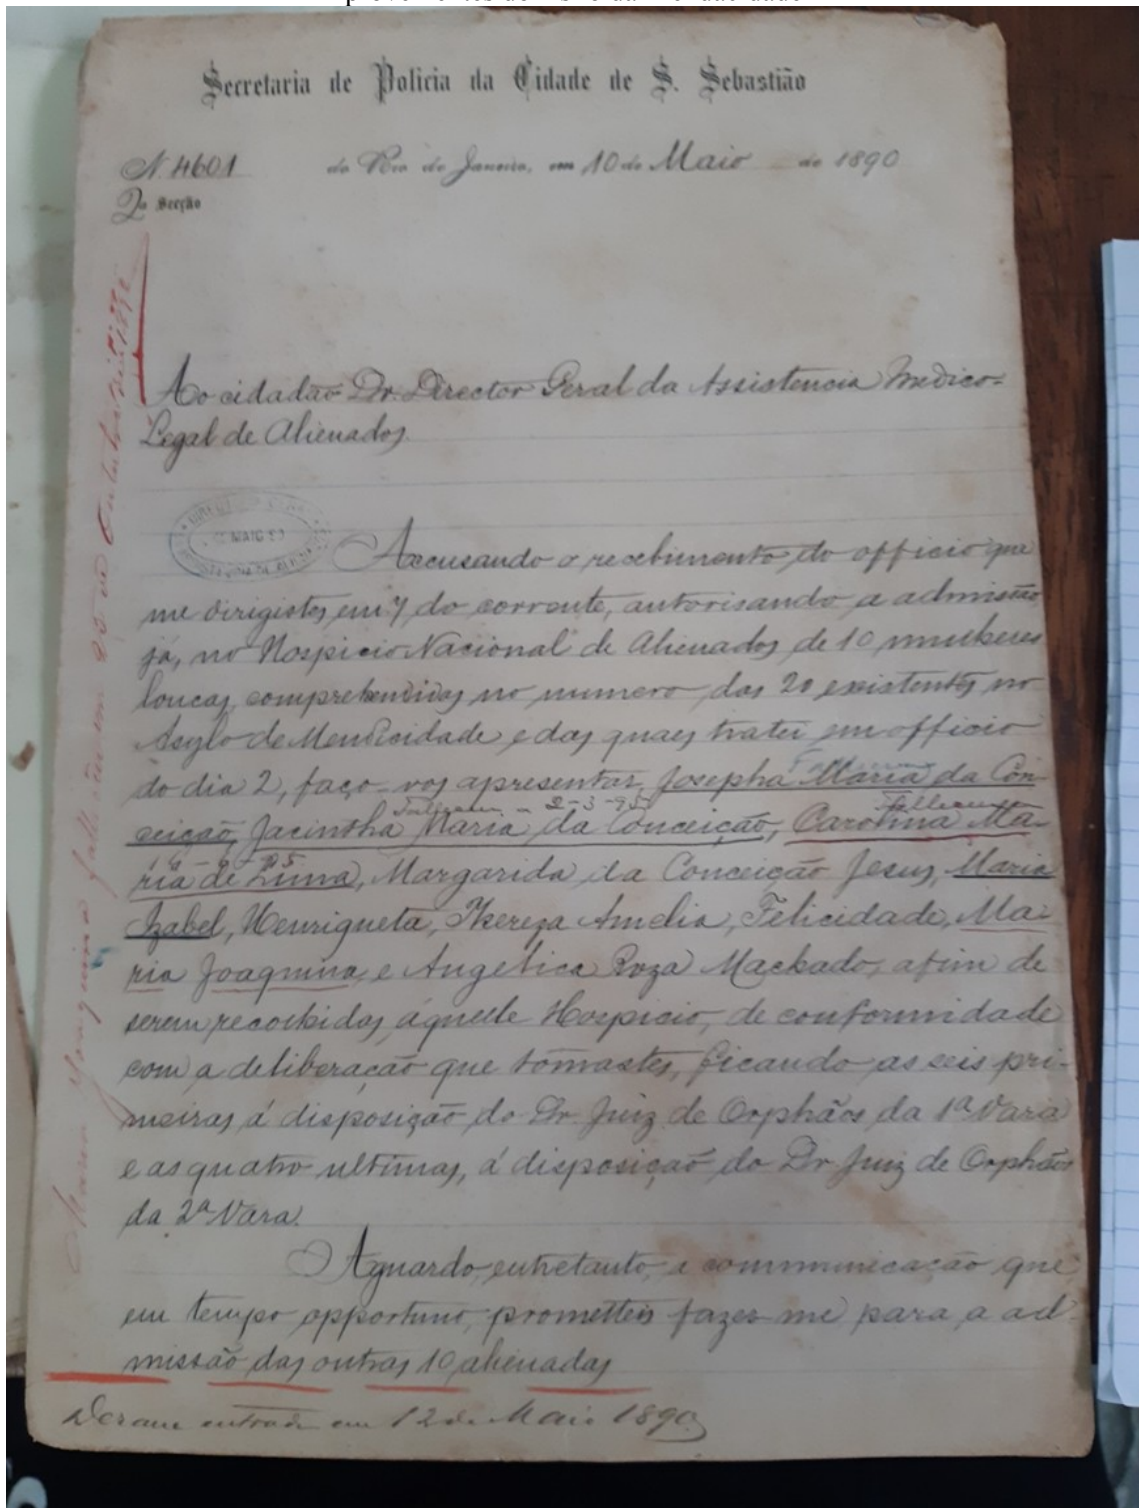 Secretaria de Policia da Cidade de S. Sebastião
N. 4601 do Rio de Janeiro, em 10 de Maio de 1890
2a Secção
Ao cidadão Dr. Director Geral da Assistencia Medico-
Legal de Alienados.
MAIO
Accusando o recebimento do officio que
me dirigistes em 7 do corrente, autorisando a admissão
já, no Hospicio Nacional de Alienados de 10 mulheres
loucas, comprehendidas no numero das 20 existentes no
Asylo de Mendicidade e das quaes tratei em officio
do dia 2, faço-vos apresentar Josepha Maria da Con-
Falleceu 2-3-95 Falleceu
ceição, Jacintha Maria da Conceição, Carolina Ma-
ria de Lima, Margarida da Conceição Jesus, Maria
Izabel, Henriqueta, Thereza Amelia, Felicidade, Ma-
ria Joaquina, e Angelica Roza Machado, afim de
serem recolhidas áquelle Hospicio, de conformidade
com a deliberação que tomastes, ficando as seis pri-
meiras á disposição do Dr. Juiz de Orphãos da 1a Vara
e as quatro ultimas, á disposição do Dr Juiz de Orphãos
da 2a Vara.
Aguardo, entretanto, a communicação que
em tempo opportuno, prometteis fazer-me para a ad-
missão das outras 10 alienadas
Deram entrada em 12 de Maio 1890
Maria Joaquina falleceu em 25 de